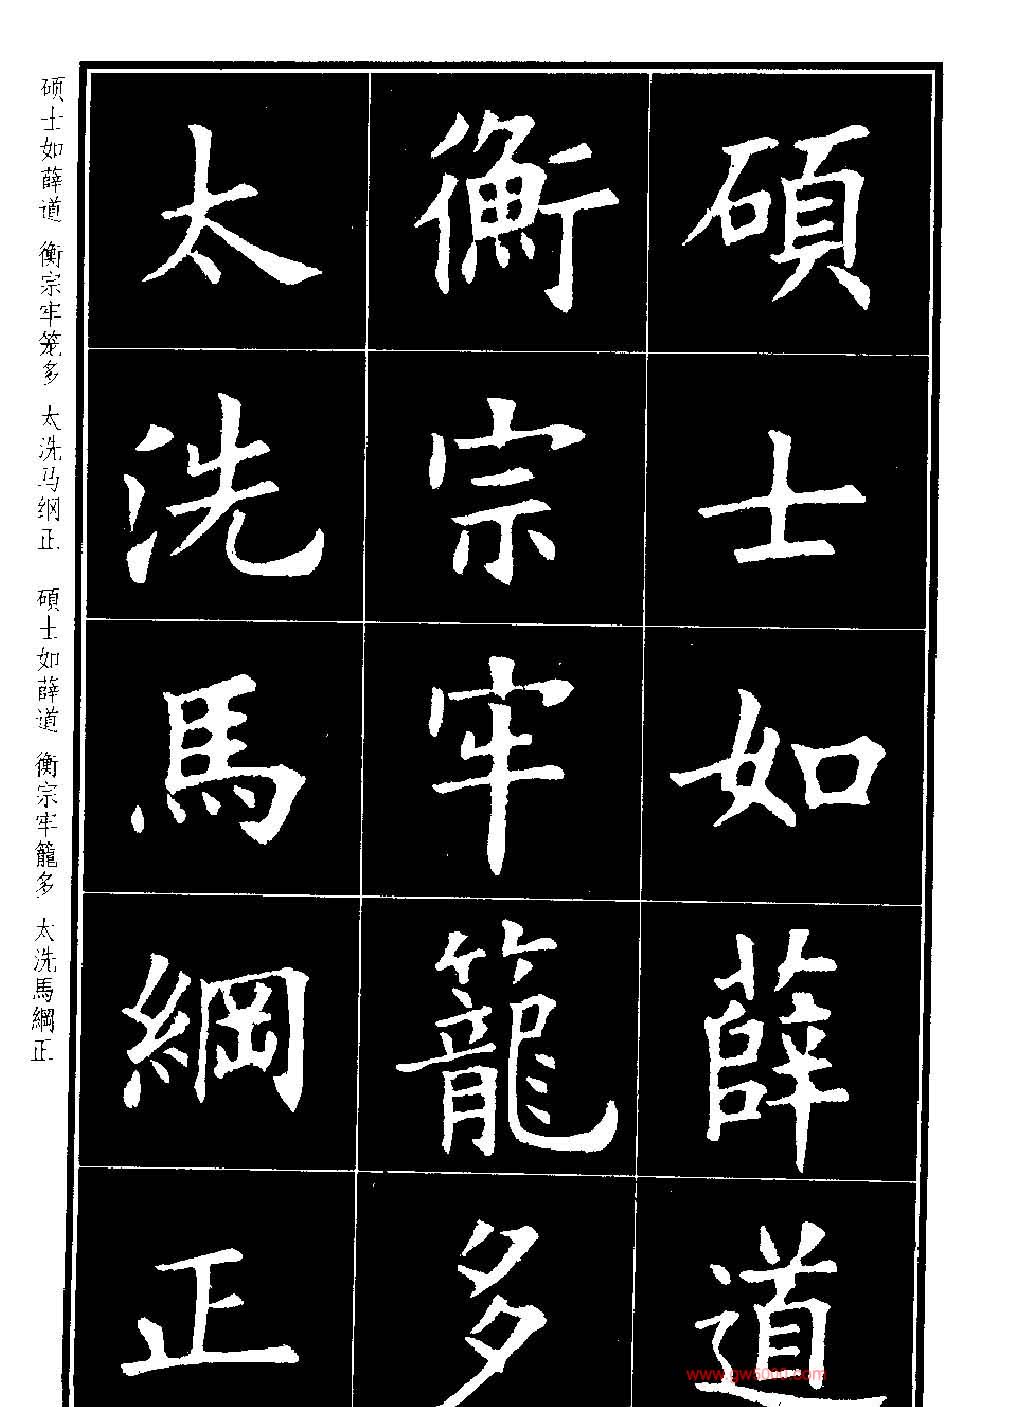 碩士如薛道
衡宗牢籠多
太洗馬綱正
硕士如薛道 衡宗牢笼多 太洗马纲正
碩士如薛道 衡宗牢籠多 太洗馬綱正
www.gw5000.com